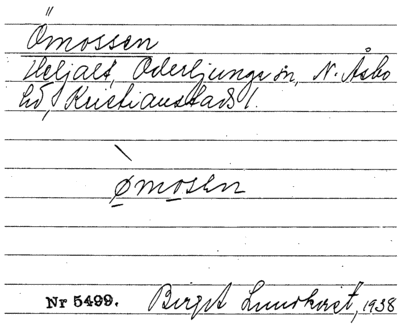 Ömossen
Heljalt, Oderljunga sn, N. Åsbo
hd, Kristianstads l.
ømosen
Nr 5499. Birgit Lundkvist, 1938